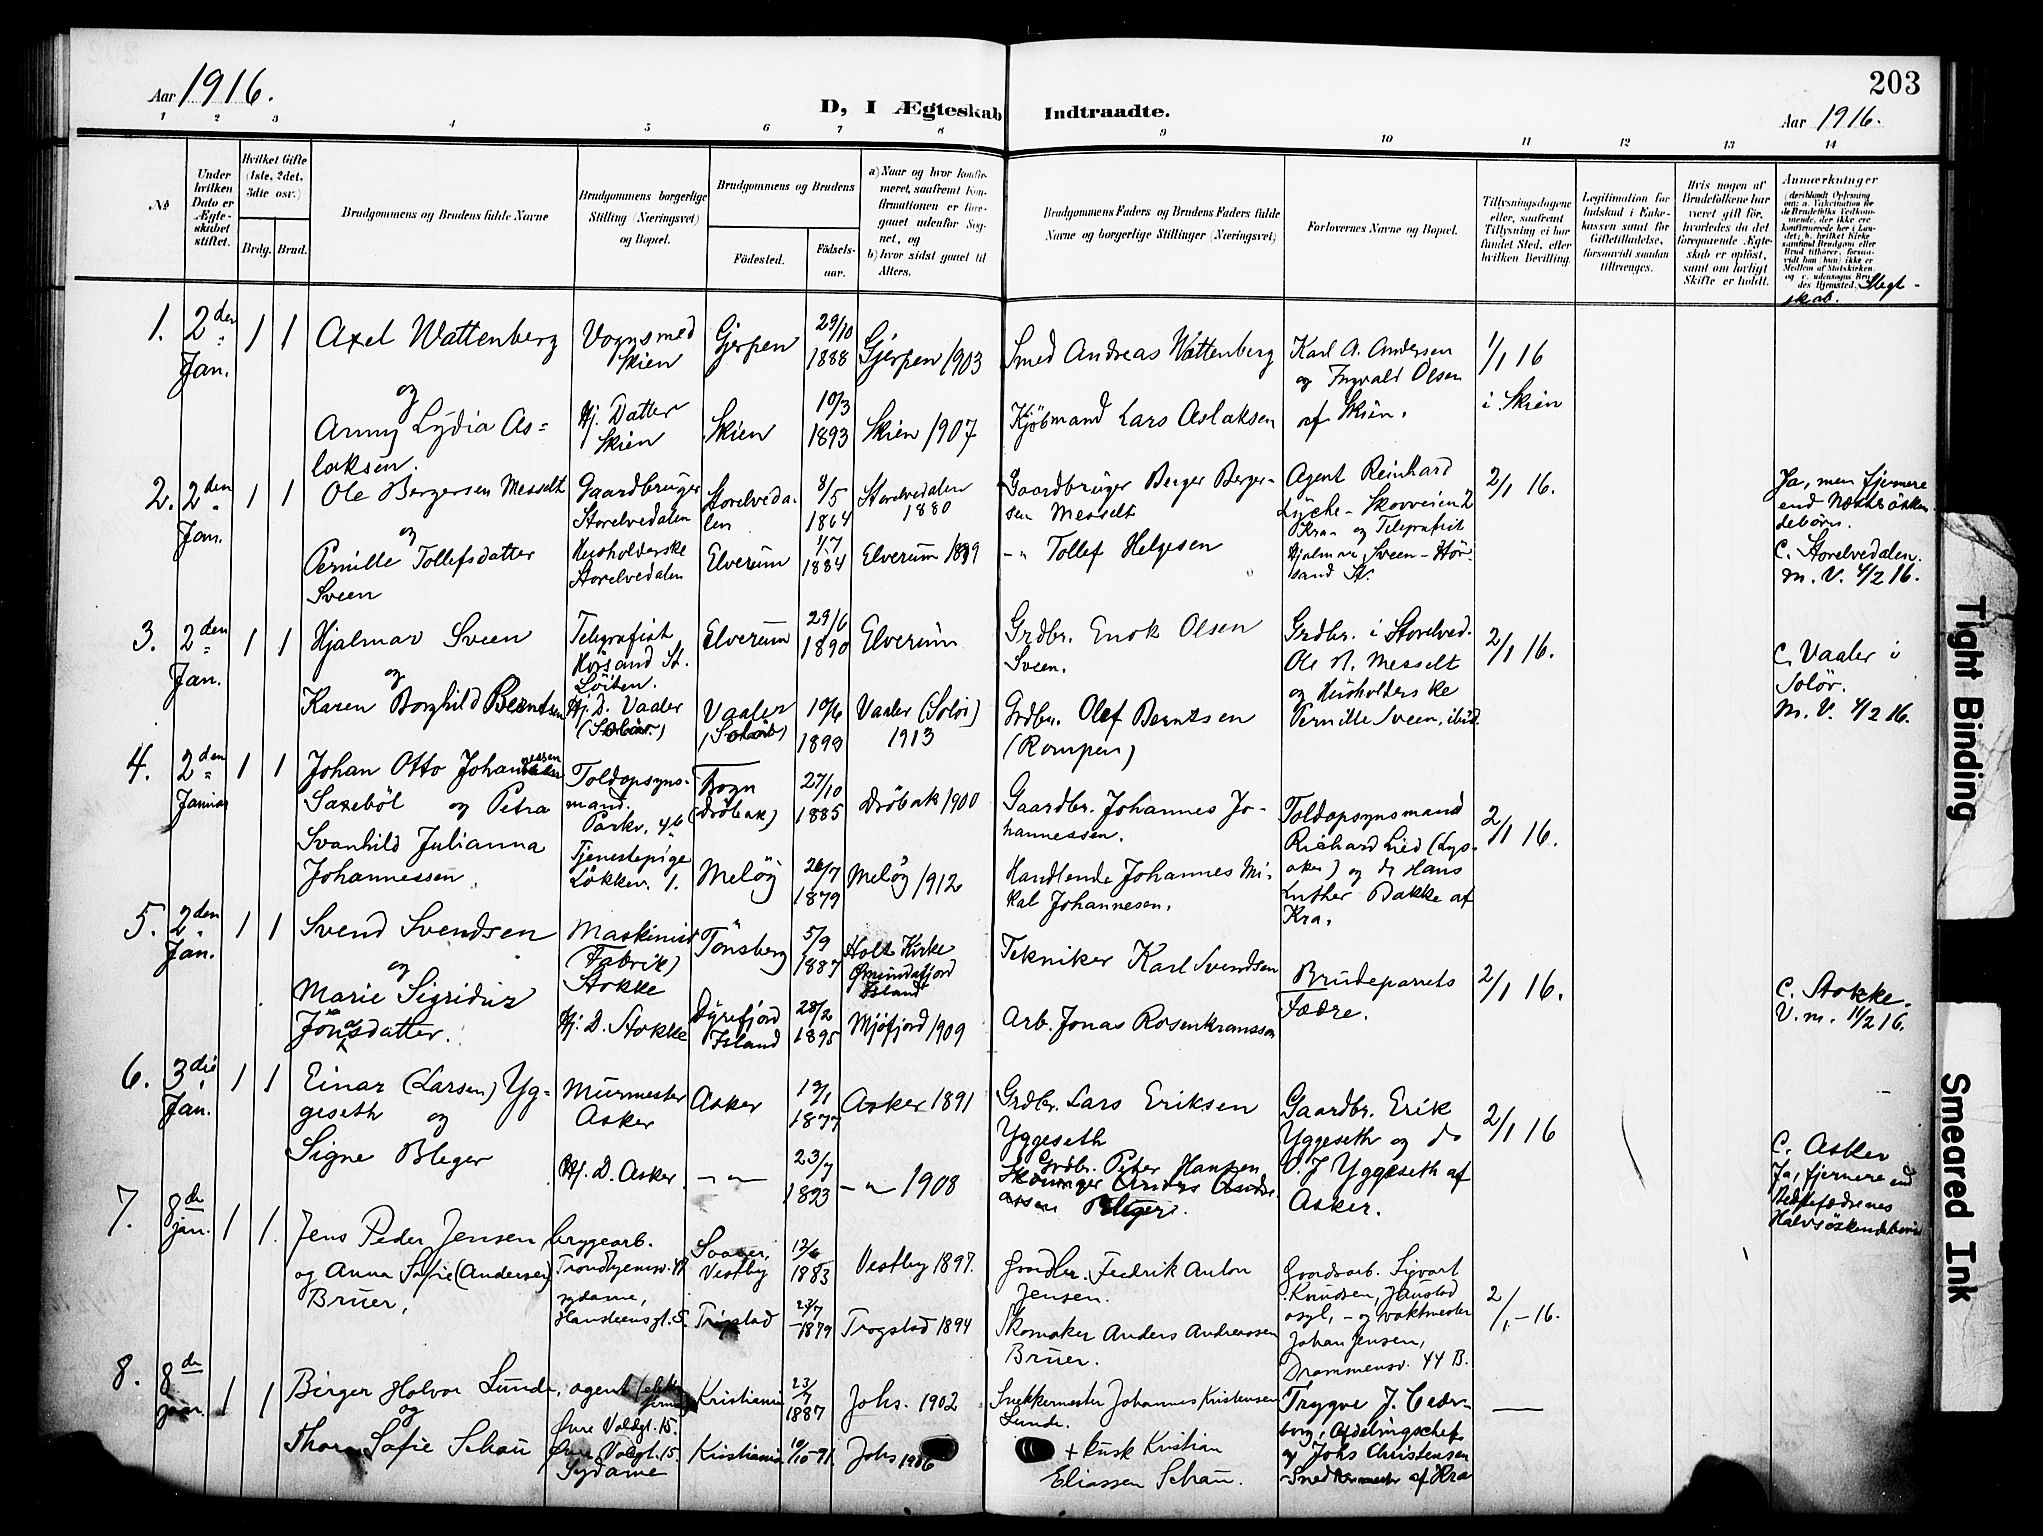 203
Aar 1916.
D, I Ægteskab Indtraadte.
Aar 1916.
1 2 3 4 5 6 7 8 9 10 11 12 13 14
No
Under hvilken Dato er Ægteskabet stiftet.
Hvilket Gifte (1ste, 2det, 3die osv.)
Brdg. Brud.
Brudgommens og Brudens fulde Navne
Brudgommens borgerlige Stilling (Næringsvei) og Bopæl.
Brudgommens og Brudens
Fødested.
Fødsels-aar.
a) Naar og hvor konfirmeret, saafremt Konfirmationen er foregaaet udenfor Sognet, og
b) hvor sidst gaaet til Alters.
Brudgommens Faders og Brudens Faders fulde Navne og borgerlige Stillinger (Næringsvei)
Forlovernes Navne og Bopæl.
Tillysningsdagene eller, saafremt Tillysning ei har fundet Sted, efter hvilken Bevilling.
Legitimation for Indskud i Enkekassen samt for Giftetilladelse, forsaavidt saadan tiltrænges.
Hvis nogen af Brudefolkene har været gift før, hvorledes da det foregaaende Ægteskab er opløst, samt om lovligt Skifte er holdt.
Anmærkninger
Slegtskab.
1. 2den Jan. 1 1
Axel Wattenberg
og
Anny Lydia Aslaksen.
Vognsmed Skien
Hj. Datter Skien
Gjerpen
Skien
29/10 1888
10/3 1893
Gjerpen 1903
Skien 1907
Smed Andreas Wattenberg
Kjöbmand Lars Aslaksen
Karl A. Andersen og Ingvald Olsen af Skien.
1/1 16 i Skien
2. 2den Jan. 1 1
Ole Bergersen Messelt
og
Pernille Tollefsdatter Sveen
Gaardbruger Storelvedalen
Husholderske Storelvedalen
Storelvedalen
Elverum
8/5 1864
4/7 1884
Storelvedalen 1880
Elverum 1899
Gaardbruger Berger Bergersen Messelt
-"- Tollef Helgesen
Agent Reinhard Lyche - Skovveien 2 Kra. og Telegrafist Hjalmar Sveen - Hörsand St.
2/1 16.
Ja, men fjernere end Næstsöskendebörn.
C. Storelvedalen.
M. V. 4/2 16.
3. 2den Jan. 1 1
Hjalmar Sveen
og
Karen Borghild Berntsen
Telegrafist Horsand St. Löiten.
Hj. D. Vaaler (Solör.)
Elverum
Vaaler (Solör)
29/6 1890
10/6 1893
Elverum
Vaaler (Solör) 1913
Grdbr. Enok Olsen Sveen.
Grdbr. Olef Berntsen (Rompen)
Grdbr. i Storelved. Ole M. Messelt og Husholderske Pernille Sveen, ibid.
2/1 16.
C. Vaaler i Solör.
M. V. 4/2 16.
4. 2den Januar 1 1
Johan Otto Johannessen
Saxeböl og Petra
Svanhild Julianna
Johannessen.
Toldopsynsmand. Parkv. 46
Tjenestepige Lökkev. 1.
Frogn (Dröbak)
Melöy
27/10 1885
26/7 1879
Dröbak 1900
Melöy 1912
Gaardbr. Johannes Johannessen.
Handlende Johannes Mikal Johannesen.
Toldopsynsmand Richard Lied (Lysaker) og do Hans Luther Bakke af Kra.
2/1 16.
5. 2den Jan. 1 1
Svend Svendsen
og
Marie Sigridur
Jónasdatter.
Maskinist (Fabrik) Stokke
Hj. D. Stokke
Tönsberg
Dyrefjord Island
5/9 1887
28/2 1895
Holt Kirke Island
Mjöfjord 1909
Tekniker Karl Svendsen
Arb. Jonas Rosenkransson
Brudeparrets Fædre.
2/1 16.
C. Stokke.
V. m. 11/2 16.
6. 3die Jan. 1 1
Einar (Larsen) Yggeseth og
Signe Bleger
Murmester Asker
Hj. D. Asker
Asker
-"-
19/1 1877
23/7 1893
Asker 1891
-"- 1908
Grdbr. Lars Eriksen Yggeseth
Grdbr. Peter Hansen Bleger.
Gaardbr. Erik Yggeseth og do V. J Yggeseth af Asker.
2/1 16
C. Asker
Ja, fjernere end
7. 8de jan. 1 1.
Jens Peder Jensen
og Anna Sofie (Andersen)
Bruer,
bryggearb.
sydame, Hansteensgt. 5.
Soaner, Vestby
Trögstad
12/6 1883
23/7 1879
Vestby 1897.
Trogstad 1894
Gaardbr. Fredrik Anton Jensen.
Skomaker Anders Andreassen Bruer.
Gaardsarb. Sigvart Knudsen, Gaustad asyl, - og vaktmester Johan Jensen, Drammensv. 44 B.
2/1 - 16.
8. 8de jan. 1 1
Birger Halvor Lunde, agent
og
Thora Sofie Schau
Övre Voldgt. 15.
Övre Voldgt. 15. Sydame
Kristiania
Kristiania
23/7 1887
10/10-91
Johs. 1902
Johs 1906
Snekkermester Johannes Kristensen Lunde.
+ kusk Kristian Eliassen Schau.
Trygve J. Cederborg, Afdelingschef og Johs Christensen Snedkermester af Kra
Tight Binding
Smeared Ink